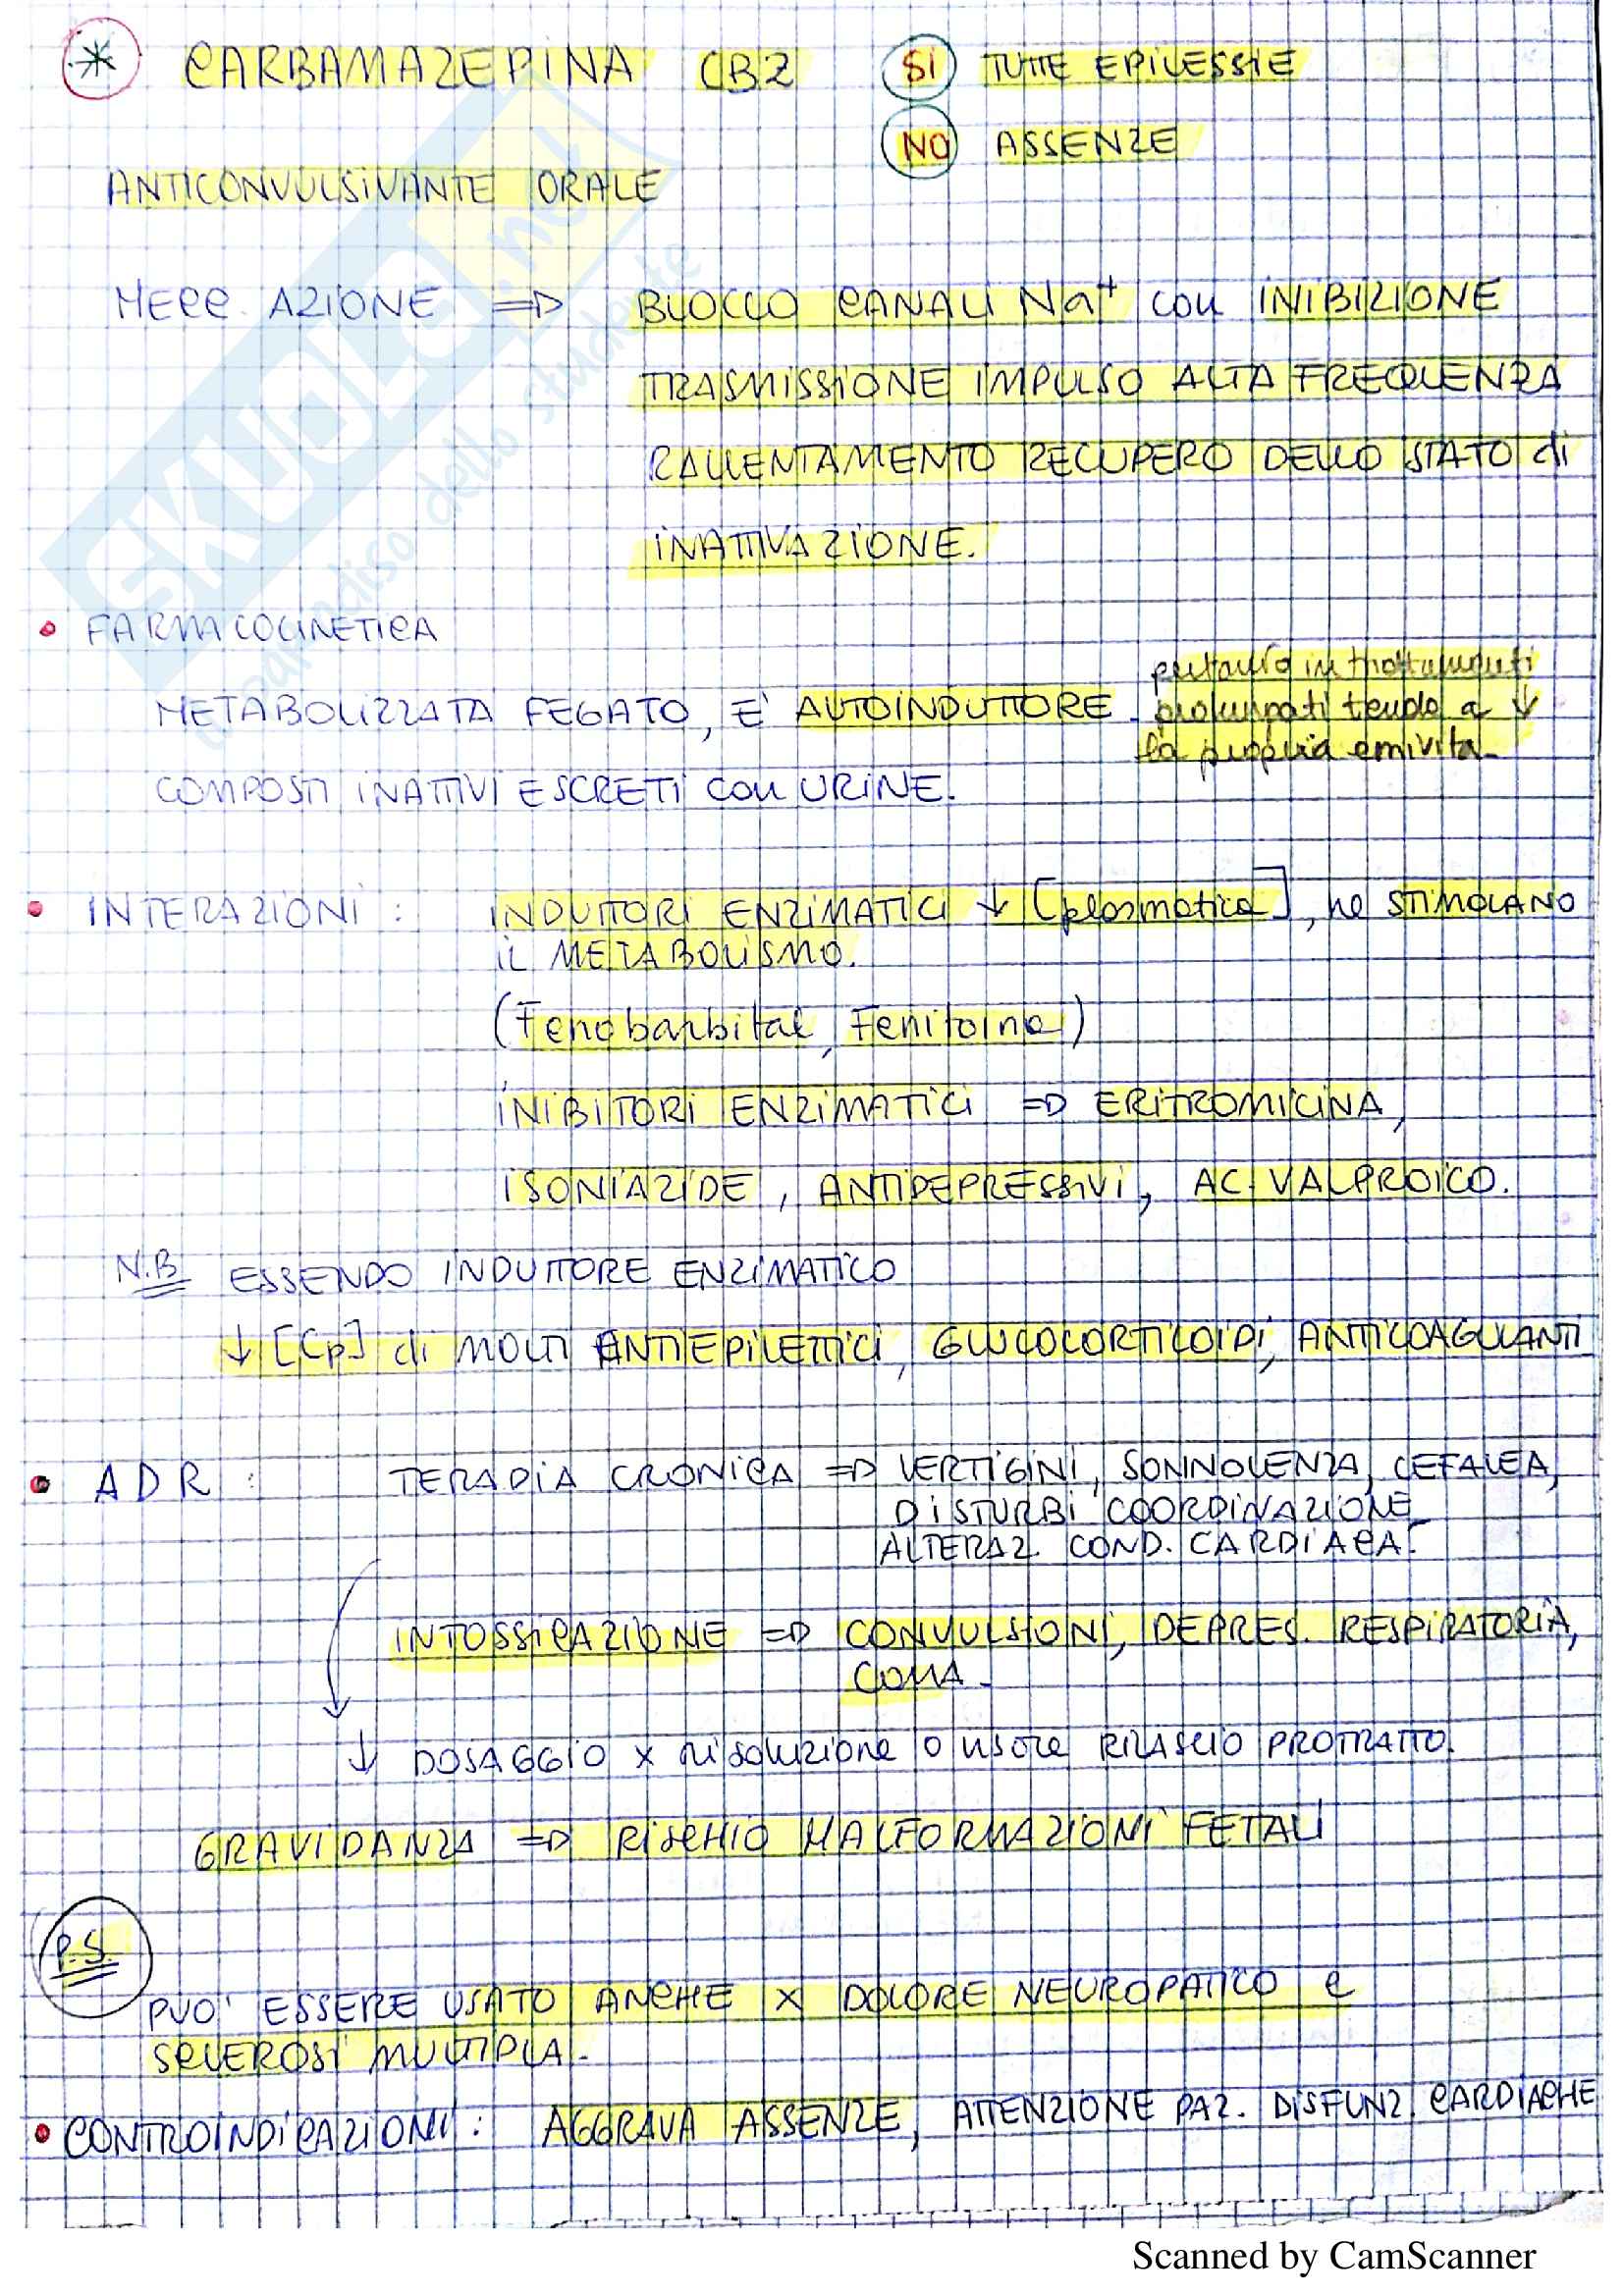 * CARBAMAZEPINA CBZ SI TUTTE EPILESSIE
NO ASSENZE
ANTICONVULSIVANTE ORALE
MECC. AZIONE => BLOCCO CANALI Na+ con INIBIZIONE
TRASMISSIONE IMPULSO ALTA FREQUENZA
RALLENTAMENTO RECUPERO DELLO STATO di
INATTIVAZIONE.
• FARMACOCINETICA
METABOLIZZATA FEGATO, E' AUTOINDUTTORE
pertanto in trattamenti
prolungati tende a ↓
la propria emivita
COMPOSTI INATTIVI ESCRETI con URINE.
• INTERAZIONI: INDUTTORI ENZIMATICI ↓ [plasmatica], ne STIMOLANO
il METABOLISMO.
(Fenobarbital, Fenitoina)
INIBITORI ENZIMATICI => ERITROMICINA,
ISONIAZIDE, ANTIDEPRESSIVI, AC. VALPROICO.
N.B ESSENDO INDUTTORE ENZIMATICO
↓ [Cp] di MOLTI ANTIEPILETTICI, GLUCOCORTICOIDI, ANTICOAGULANTI
• ADR: TERAPIA CRONICA => VERTIGINI, SONNOLENZA, CEFALEA,
DISTURBI COORDINAZIONE
ALTERAZ. COND. CARDIACA.
INTOSSICAZIONE => CONVULSIONI, DEPRES. RESPIRATORIA,
COMA.
↓ DOSAGGIO x risoluzione o usare RILASCIO PROTRATTO.
GRAVIDANZA => RISCHIO MALFORMAZIONI FETALI
P.S.
PUO' ESSERE USATO ANCHE x DOLORE NEUROPATICO e
SCLEROSI MULTIPLA.
• CONTROINDICAZIONI: AGGRAVA ASSENZE, ATTENZIONE PAZ. DISFUNZ. CARDIACHE
SKUOLA.net
il paradiso dello studente
Scanned by CamScanner